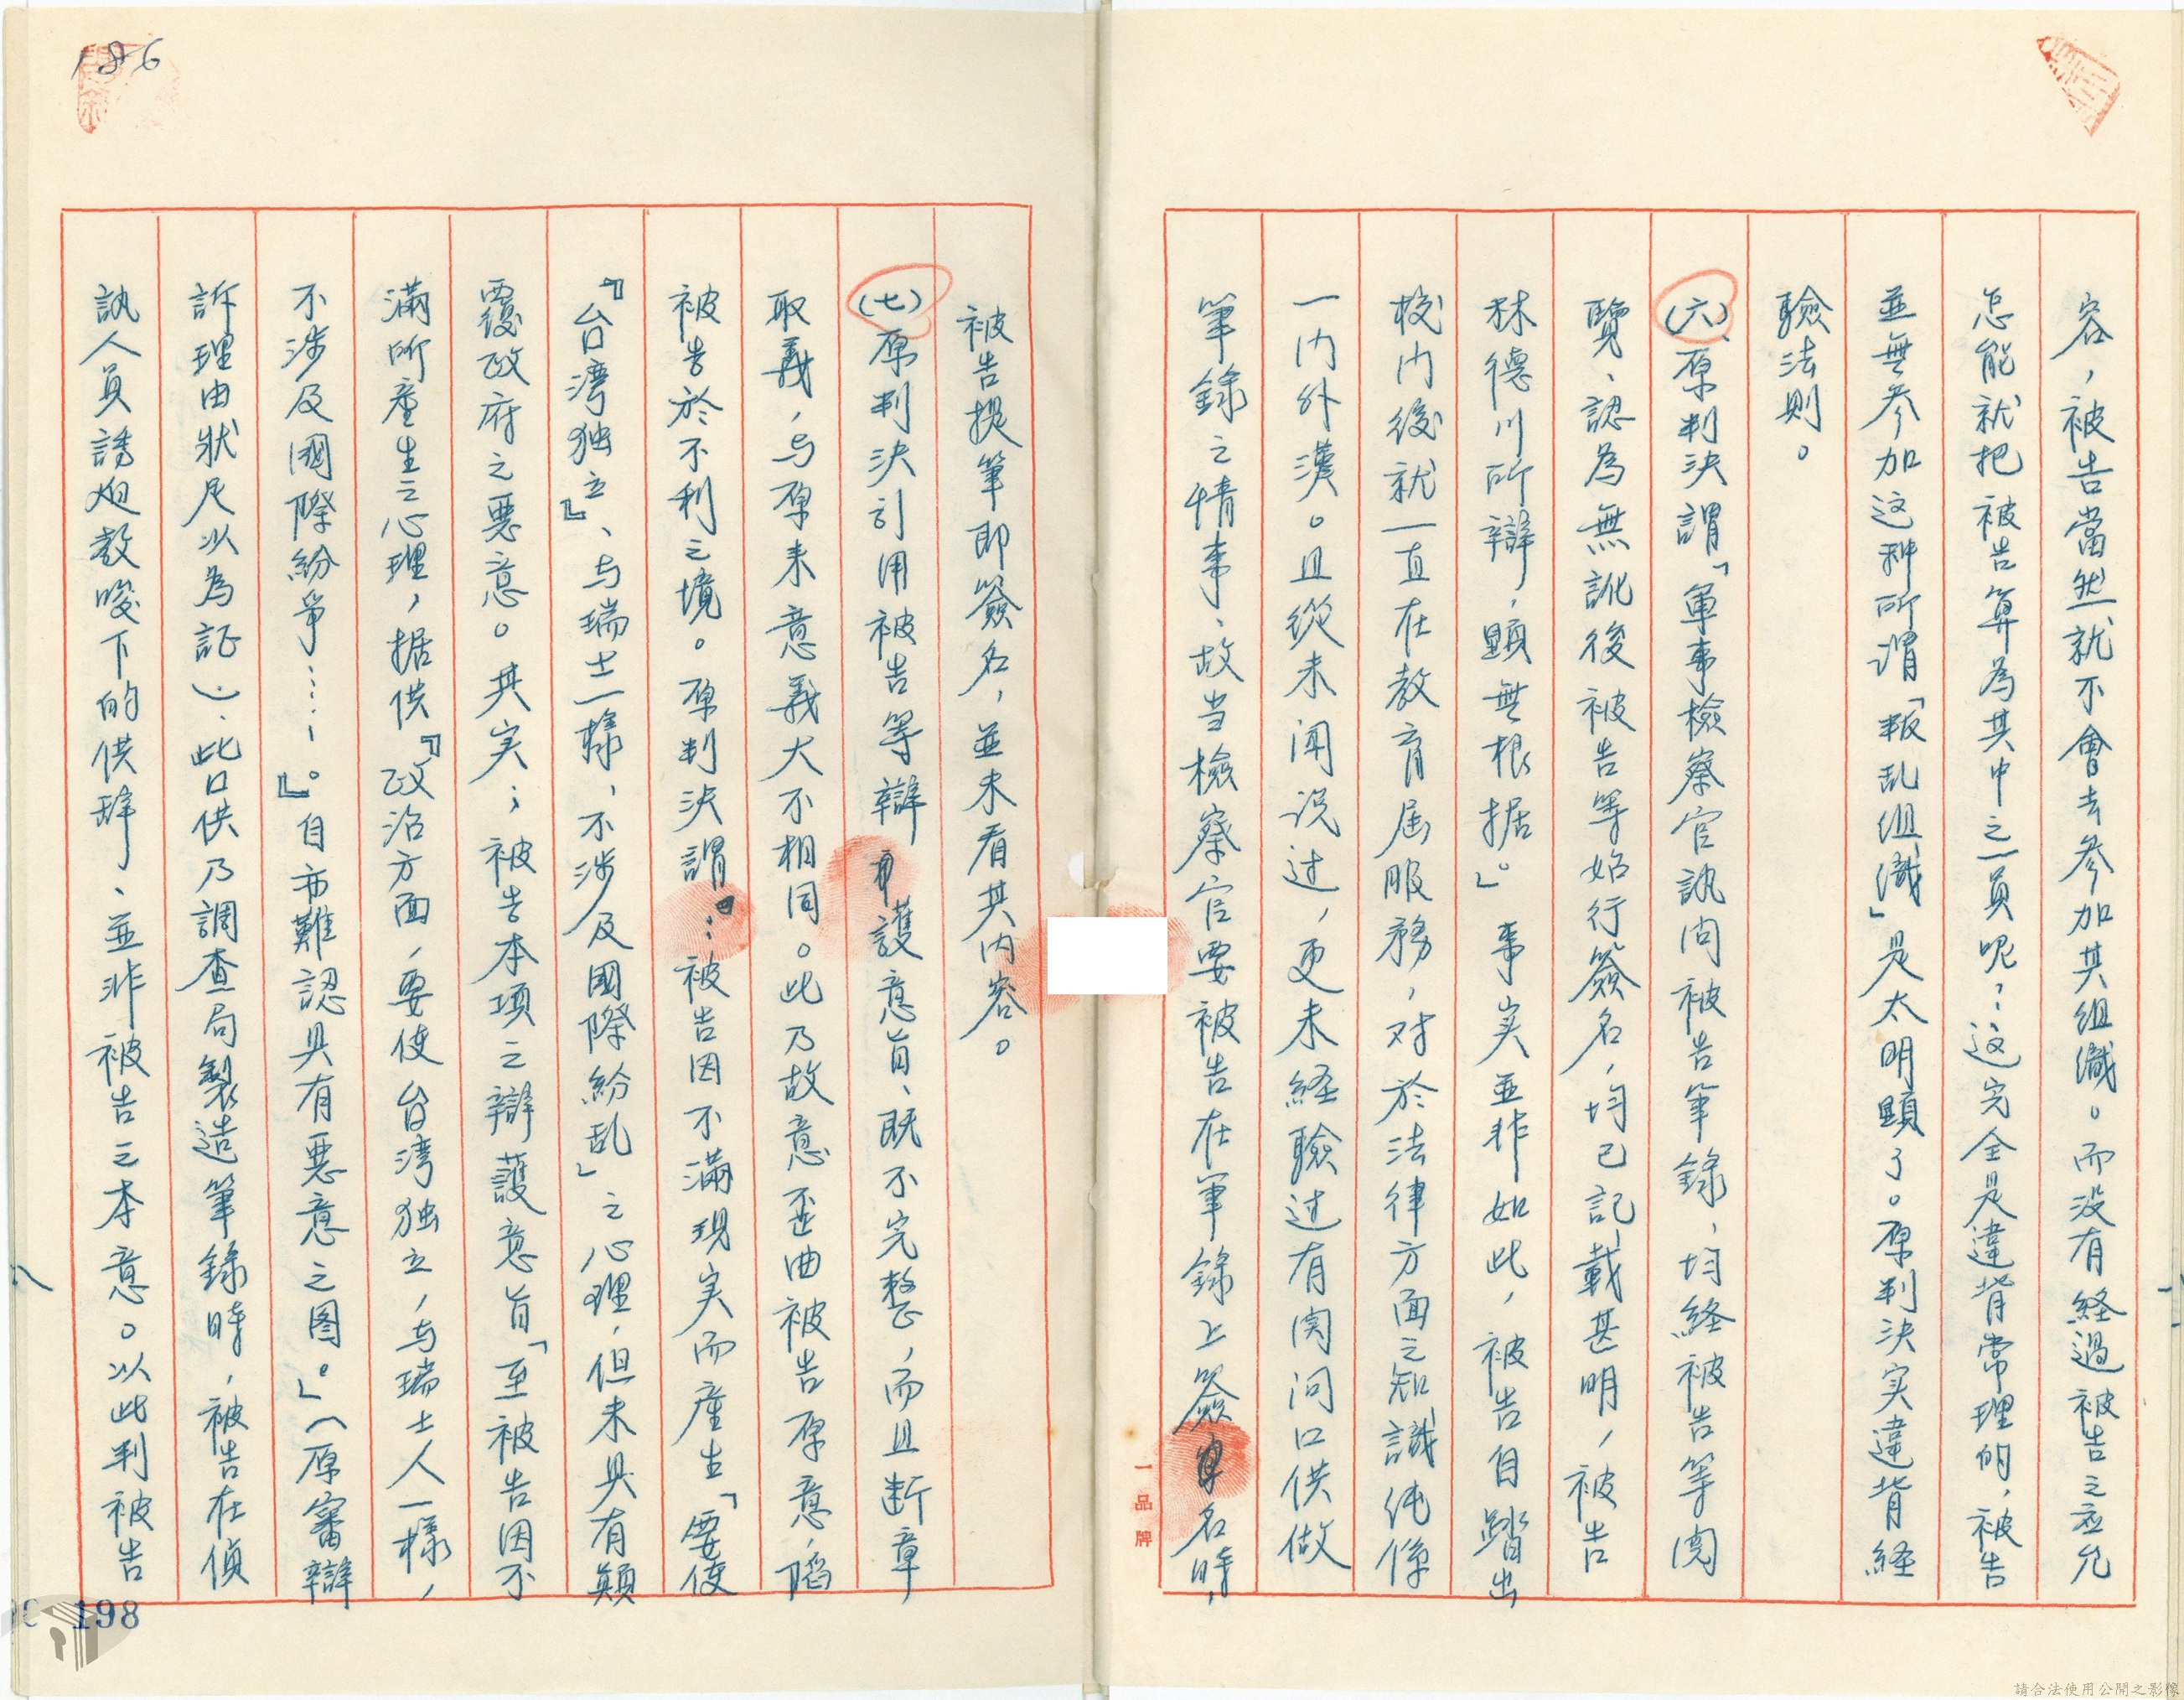 容，被告當然就不會去參加其組識。而没有経過被告之应允
怎能就把被告算為其中之一員呢？这完全是違背常理的，被告
並無參加这种所謂「叛乱组識」是太明顕了。原判決実違背経
驗法則。
(六)、原判決謂「軍事檢察官訊问被告筆錄、均経被告等阅
覽、認為無訛後被告等始行簽名，均已記載甚明，被告
林德川所辯，顕無根据。」事実並非如此，被告自踏出
校门後就一直在教育届服務，对於法律方面之知識纯係
一门外漢。且從未闻说过，更未経驗过有関问口供做
筆錄之情事、故当檢察官要被告在筆錄上簽名時，
被告提筆即簽名，並未看其内容。
(七)原判決引用被告等辯護意旨、既不完整，而且断章
取義，与原来意義大不相同。此乃故意歪曲被告原意，陷
被告於不利之境。原判決謂『…被告因不滿現実而産生「要使
『台湾独立』、与瑞士一樣、不涉及國際紛乱」之心理，但未具有顛
覆政府之惡意。其実；被告本項之辯護意旨「至被告因不
滿所産生之心理，据供『政治方面，要使台湾独立，与瑞士人一樣，
不涉及國際紛爭……。』自亦難認具有惡意之图。」（原審辯
訴理由狀足以為証）、此口供乃調查局製造筆錄時，被告在偵
訊人員誘迫教唆下的供辞、並非被告之本意。以此判被告
186
198
一品牌
請合法使用公開之影像